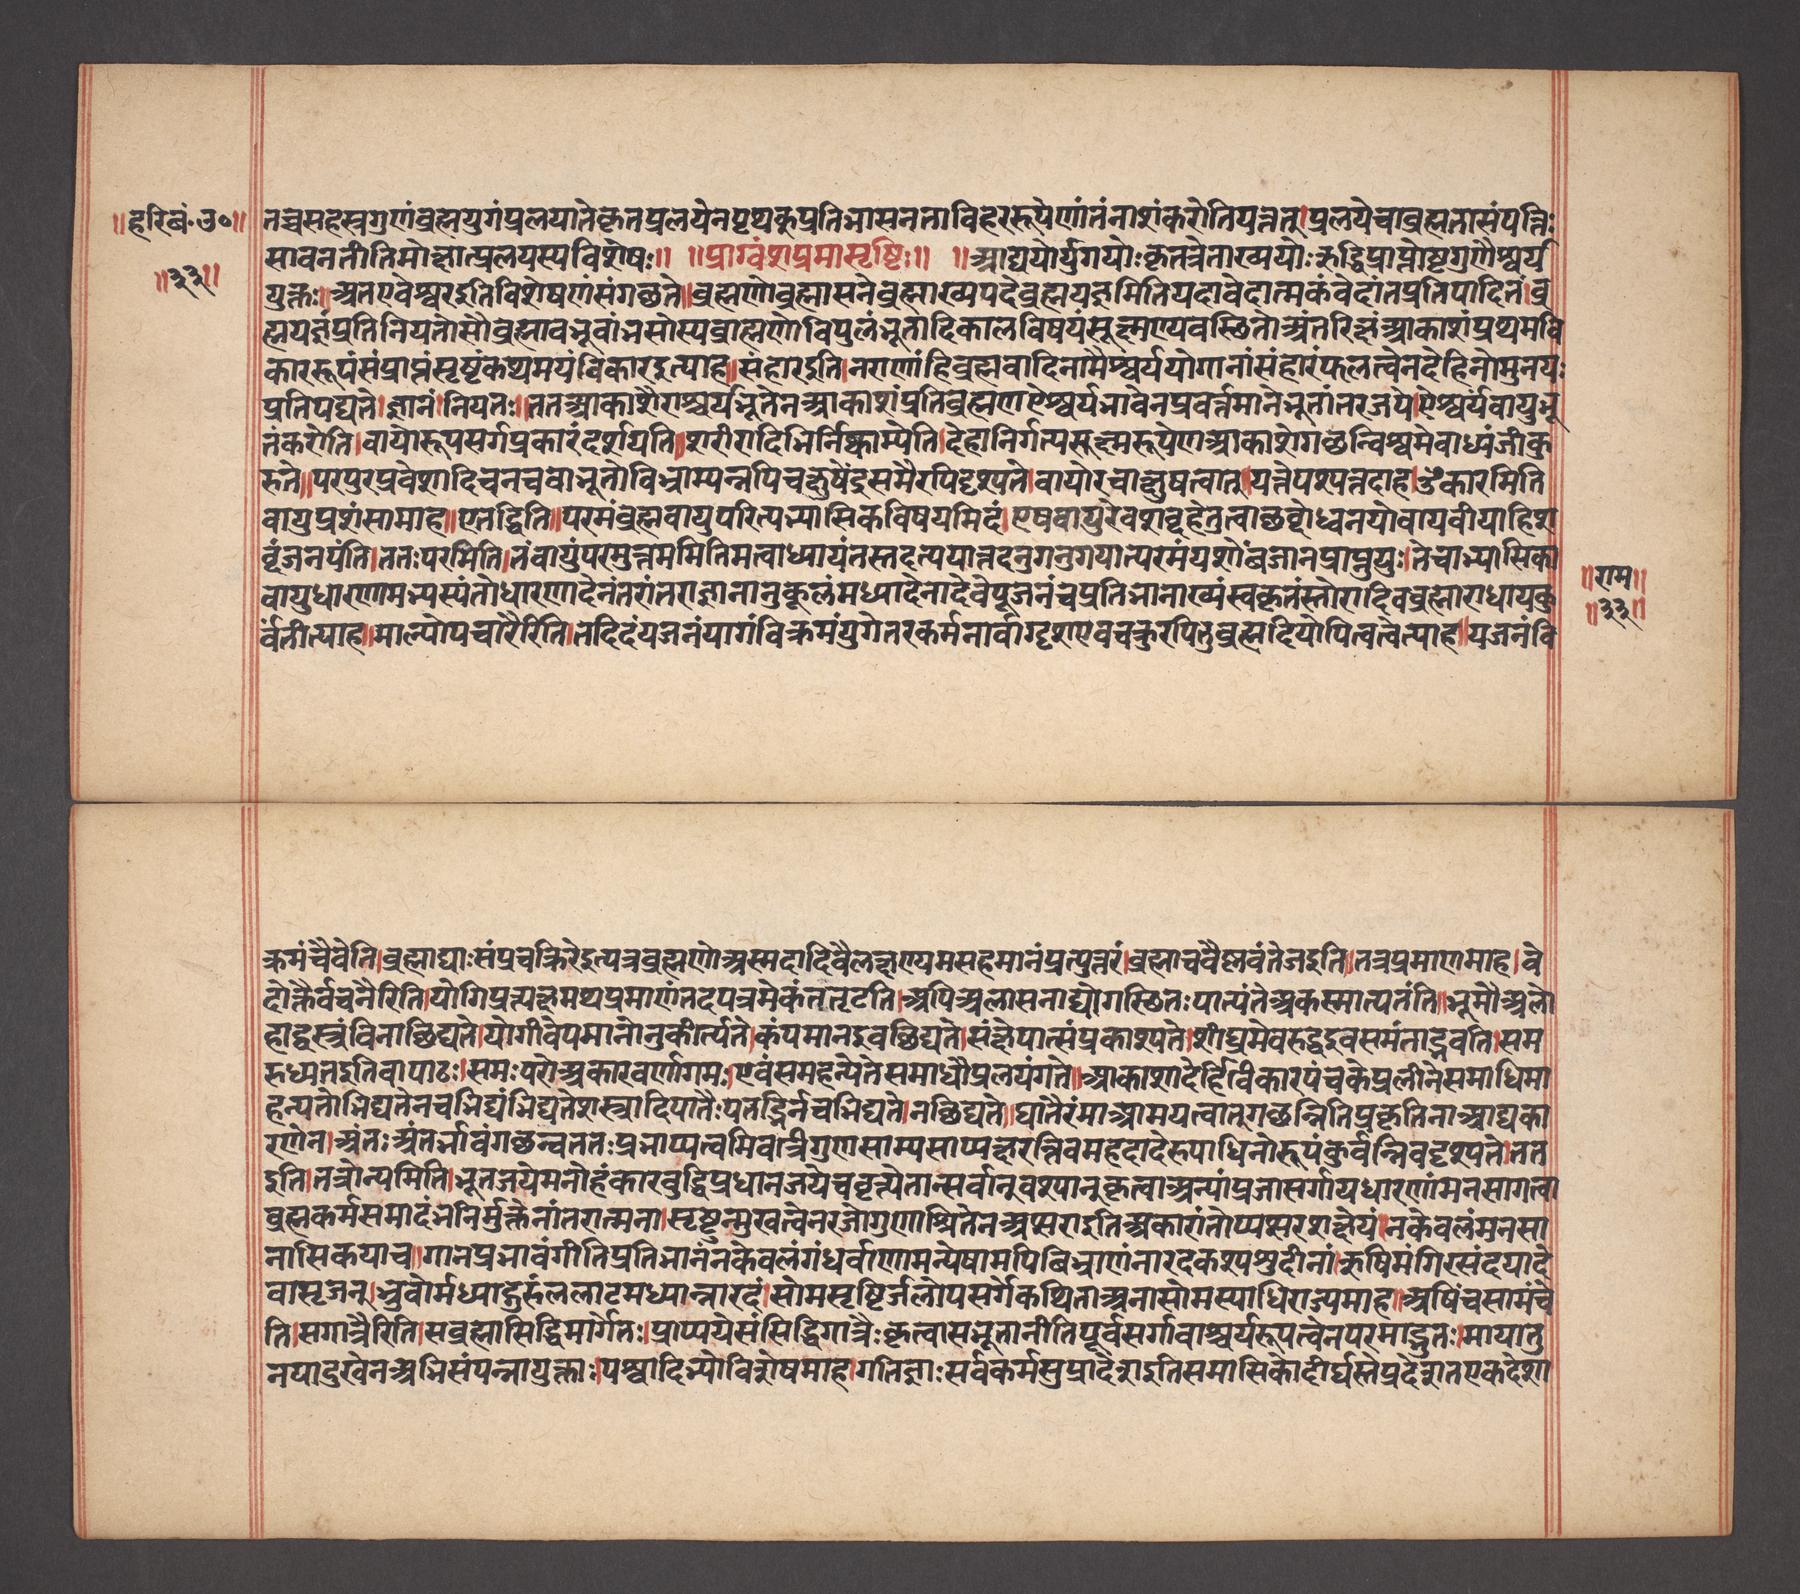 ॥हरिवं.उ०॥
॥३३॥
तच्चसहस्रगुणंब्रह्मयुगंप्रलयांतेकृतप्रलयेनपृथक्प्रतिभासनततोविहररूपेणांतंनाशंकरोतियत्नेतु।प्रलयेचाब्रह्मतासंपत्तिः
सावनतीतिमोक्षात्प्रलयस्यविशेषः॥ ॥प्राग्वंशप्रमासृष्टिः॥ ॥आद्ययोर्युगयोःकृतत्रेताख्ययोःरुद्धिप्राप्तोष्टगुणैश्वर्य
युक्तः।अतएवेश्वरइतिविशेषणंसंगछते॥ब्रह्मणोब्रह्मासनेब्रह्माख्यपदेब्रह्मयज्ञमितियदावेदात्मकंवेदांतप्रतिपादितं।ब्र
ह्मयज्ञंप्रतिनियतोसौब्रह्मावभूवांभसोस्यब्राह्मणोविपुलंभूतादिकालविषयंसूक्ष्मण्यवस्थितोअंतरिक्षंआकाशंप्रथमवि
काररूपंसंप्राप्तंसृष्टंकथमयंविकारइत्याह॥संहारइति।नराणांहिब्रह्मवादिनामैश्वर्ययोगानांसंहारंफलत्वेनदेहिनोमुनयः
प्रतिपद्यते।ज्ञानंनियतः॥ततआकाशैराश्चर्यभूतेनआकाशंप्रतिब्रह्मणऐश्वर्यभावेनप्रवर्त्तमानेभूतांतरजय।ऐश्वर्यवायुभू
तंकरोति।वायोरूपसर्गप्रकारंदर्शयति॥शरीरादिभिर्निष्क्राम्येति।देहान्निर्गत्यसूक्ष्मरूपेणआकाशेगछन्विश्वमेवाध्यंजीकु
रुते॥परपुरप्रवेशादिचनचवाभूतोविभ्राम्यन्नपिचक्षुषेंद्रसमैरपिदृश्यते।वायोरचाक्षुषत्वात्।यत्नेपश्यन्नदाह।ॐकारमिति
वायुप्रशंसामाह॥एतद्धिति॥परमंब्रह्मवायुपरित्यभ्यासिकविषयमिदं।एषवायुरेवशब्दहेतुत्वाछब्दोध्वनयोवायवीयाहिश
ब्दंजनयंति।ततःपरमिति।तंवायुंपरमुत्तममितिमत्वाध्यायंतस्तदत्ययात्तदनुगनुगयात्परमंयशोंबजानप्राप्नुयुः।तेचाभ्यासिका
वायुधारणामभ्यस्यंतोधारणादेनंतरांतराज्ञानानुकूलंमध्यादेनादेवेपूजनंचप्रतिभानाख्यंस्वकृतंस्तोरादिवब्रह्माराधायकु
र्वतीत्याह।माल्योपचारैरिति।तदिदंयजनंयागंविक्रमंयुगेतरकर्मनार्वाग्दृशएवचक्रुरपितुब्रह्मादियोपित्वत्वेत्याह॥यजनंवि
॥राम॥
॥३३॥
क्रमंचैवेति।ब्रह्माद्याःसंप्रचक्रिरेइत्यत्रब्रह्मणोअस्मदादिवैलक्षण्यमसहमानंप्रत्युत्तरं।ब्रह्माचवैष्णवंतेजइति।तत्रप्रमाणमाह।वे
दोक्तैर्वचनैरिति।योगिप्रत्यक्षमथप्रमाणंतदपत्रमेकंततृटति।अपिअलासनाद्योगस्थितःपात्यंतेअकस्मात्पतंति॥भूमौअलो
हाद्वस्त्रंविनाछिद्यते।योगीवेपमानोनुकीर्त्यते।कंपमानइवछिद्यते।संक्षेपात्संप्रकाश्यते।शीघ्रमेवरुद्धइवसमंताद्भवति।सम
रुध्यतइतिवापाठः।समःपरोअकारवर्णागमः।एवंसमहन्येतेसमाधौप्रलयंगते।आकाशादेर्हित्विकारपंचकेप्रलीनेसमाधिमा
हन्यतोभिद्यतेनचभिद्यंभिद्यतेशस्त्रादिपातैःपतद्भिर्नचभिद्यते।नछिद्यते॥घातैरंमाआमयत्वात्गछन्नितिप्रकृतिनाआद्यका
रणेन।अंतःअंतर्भावंगछन्वततःप्रभाप्यत्वमिवात्रीगुणसाम्यसाप्यक्षरन्निवमहदादेरुपाधिनोरूपंकुर्वन्निवदृश्यते।तत
इति।तत्रोन्यमिति।भूतजयेमनोहंकारबुद्धिप्रधानजयेचवृत्त्येतान्सर्वानुवश्यानुकृत्वाअन्यांप्रजासर्गायधारणांमनसागत्वा
ब्रह्मकर्मसमादंभनिर्मुक्तेनांतरात्मना।सृष्ट्युन्मुखत्वेनरजोगुणाश्रितेनअप्सराइतिअकारांतोप्यप्सरशब्दोयं।नकेवलंमनसा
नासिकयाच॥गानप्रभावंगीतिप्रतिभानंनकेवलंगंधर्वाणामन्येषामपिबिभ्राणंनारदकश्यप्रुदीनां।रुषिमंगिरसंदयादे
वासृजन्।भ्रुवोर्मध्याद्रुरुंललाटमध्यान्नारदं।सोमसृष्टिर्जलोपसर्गेकथिताअनासोमस्याधिराज्यमाह।अषिंचसामंचे
ति।सगात्रैरिति।सब्रह्मासिद्धिमार्गतः।प्राप्ययेसंसिद्धिगात्रैःकृत्वासभूतानीतिपूर्वसर्गावाश्चर्यरूपत्वेनपरमाद्भुतः।मायातु
नयादुखेनअभिसंपन्नायुक्ताः।पश्वादिभ्योविशेषमाह।गतिज्ञाःसर्वकर्मसुप्रादेशइतिसमासिकोदीर्घस्तेप्रदेशतएकदेशा